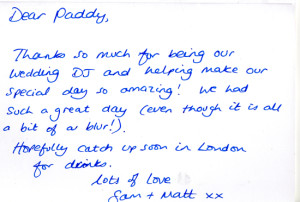 Dear Paddy,
Thanks so much for being our
wedding DJ and helping make our
special day so amazing! We had
such a great day (even though it is all
a bit of a blur!).
Hopefully catch up soon in London
for drinks.
Lots of love
Sam + Matt xx